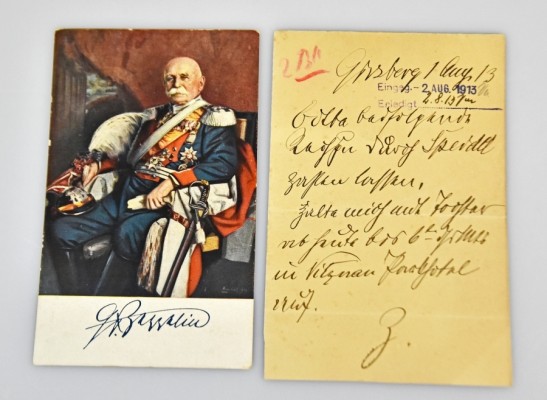 Gf. Zeppelin
2 BM
Girsberg 1 Aug. 13
Eingeg. - 2. AUG. 1913
Erledigt 2.8.13
bitte beifolgende
durch Speidel
zahlen lassen.
halte mich mit Tochter
ab heute bis 6ten
in Vitznau Parkhotel
auf.
Z.